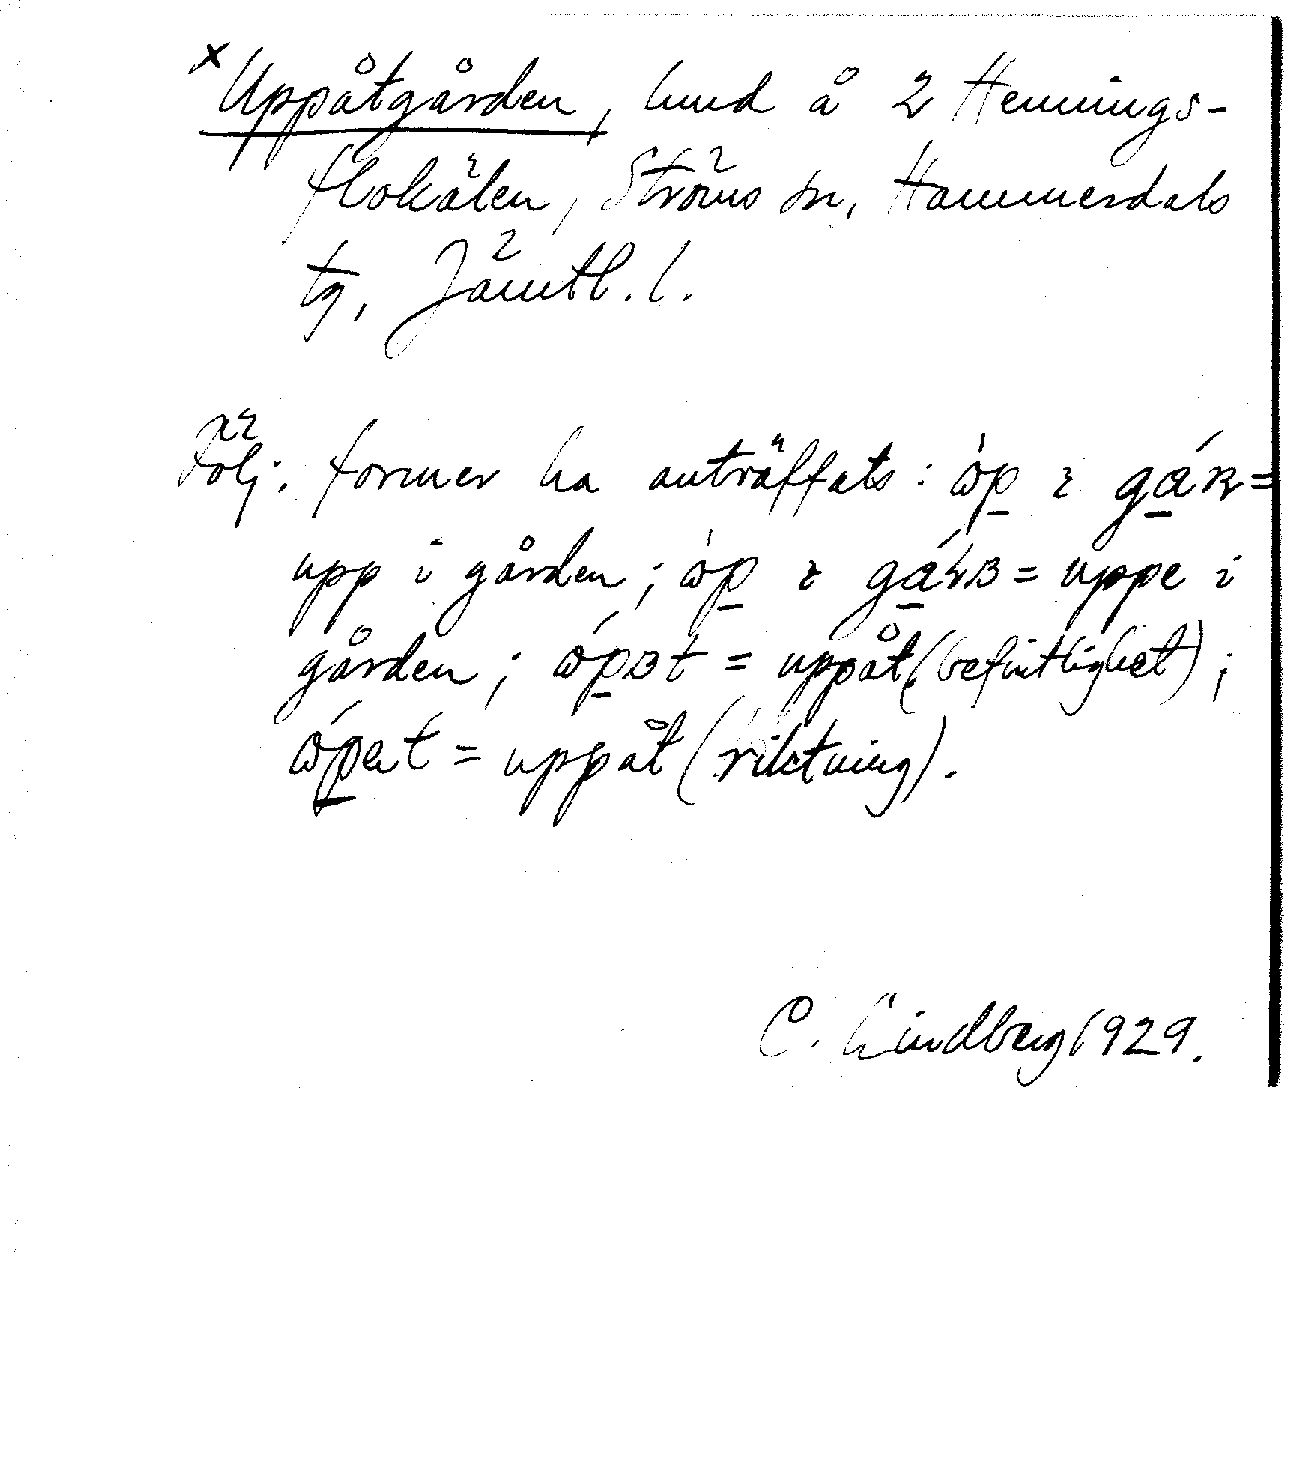 x Uppåtgården, hmd å 2 Hennings-
flokälen, Ströms sn, Hammerdals
tg, Jämtl. l.
Följ. former ha anträffats:
upp i gården; = uppe i
gården; = uppåt (befintlighet);
= uppåt (riktning).
C. Lindberg 1929.